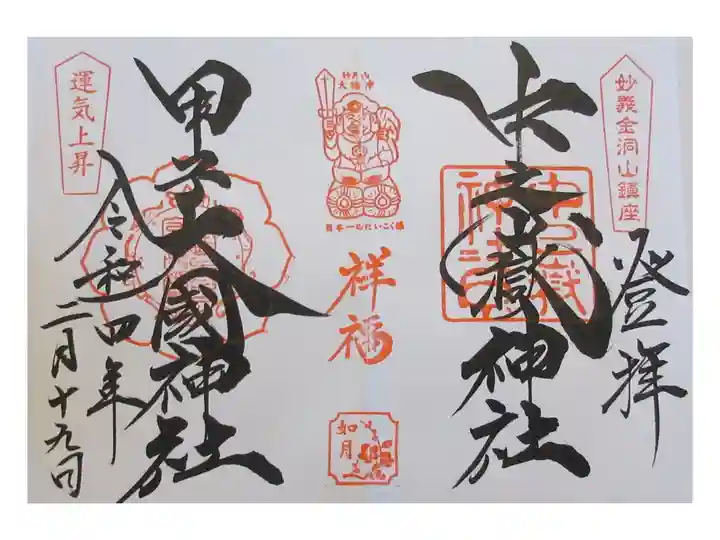 妙義金洞山鎮座
登拝
中之嶽神社
中之嶽
神社
妙義山
大福神
日本一のだいこく様
祥福
如月
甲子大國神社
運気上昇
令和四年
二月十九日